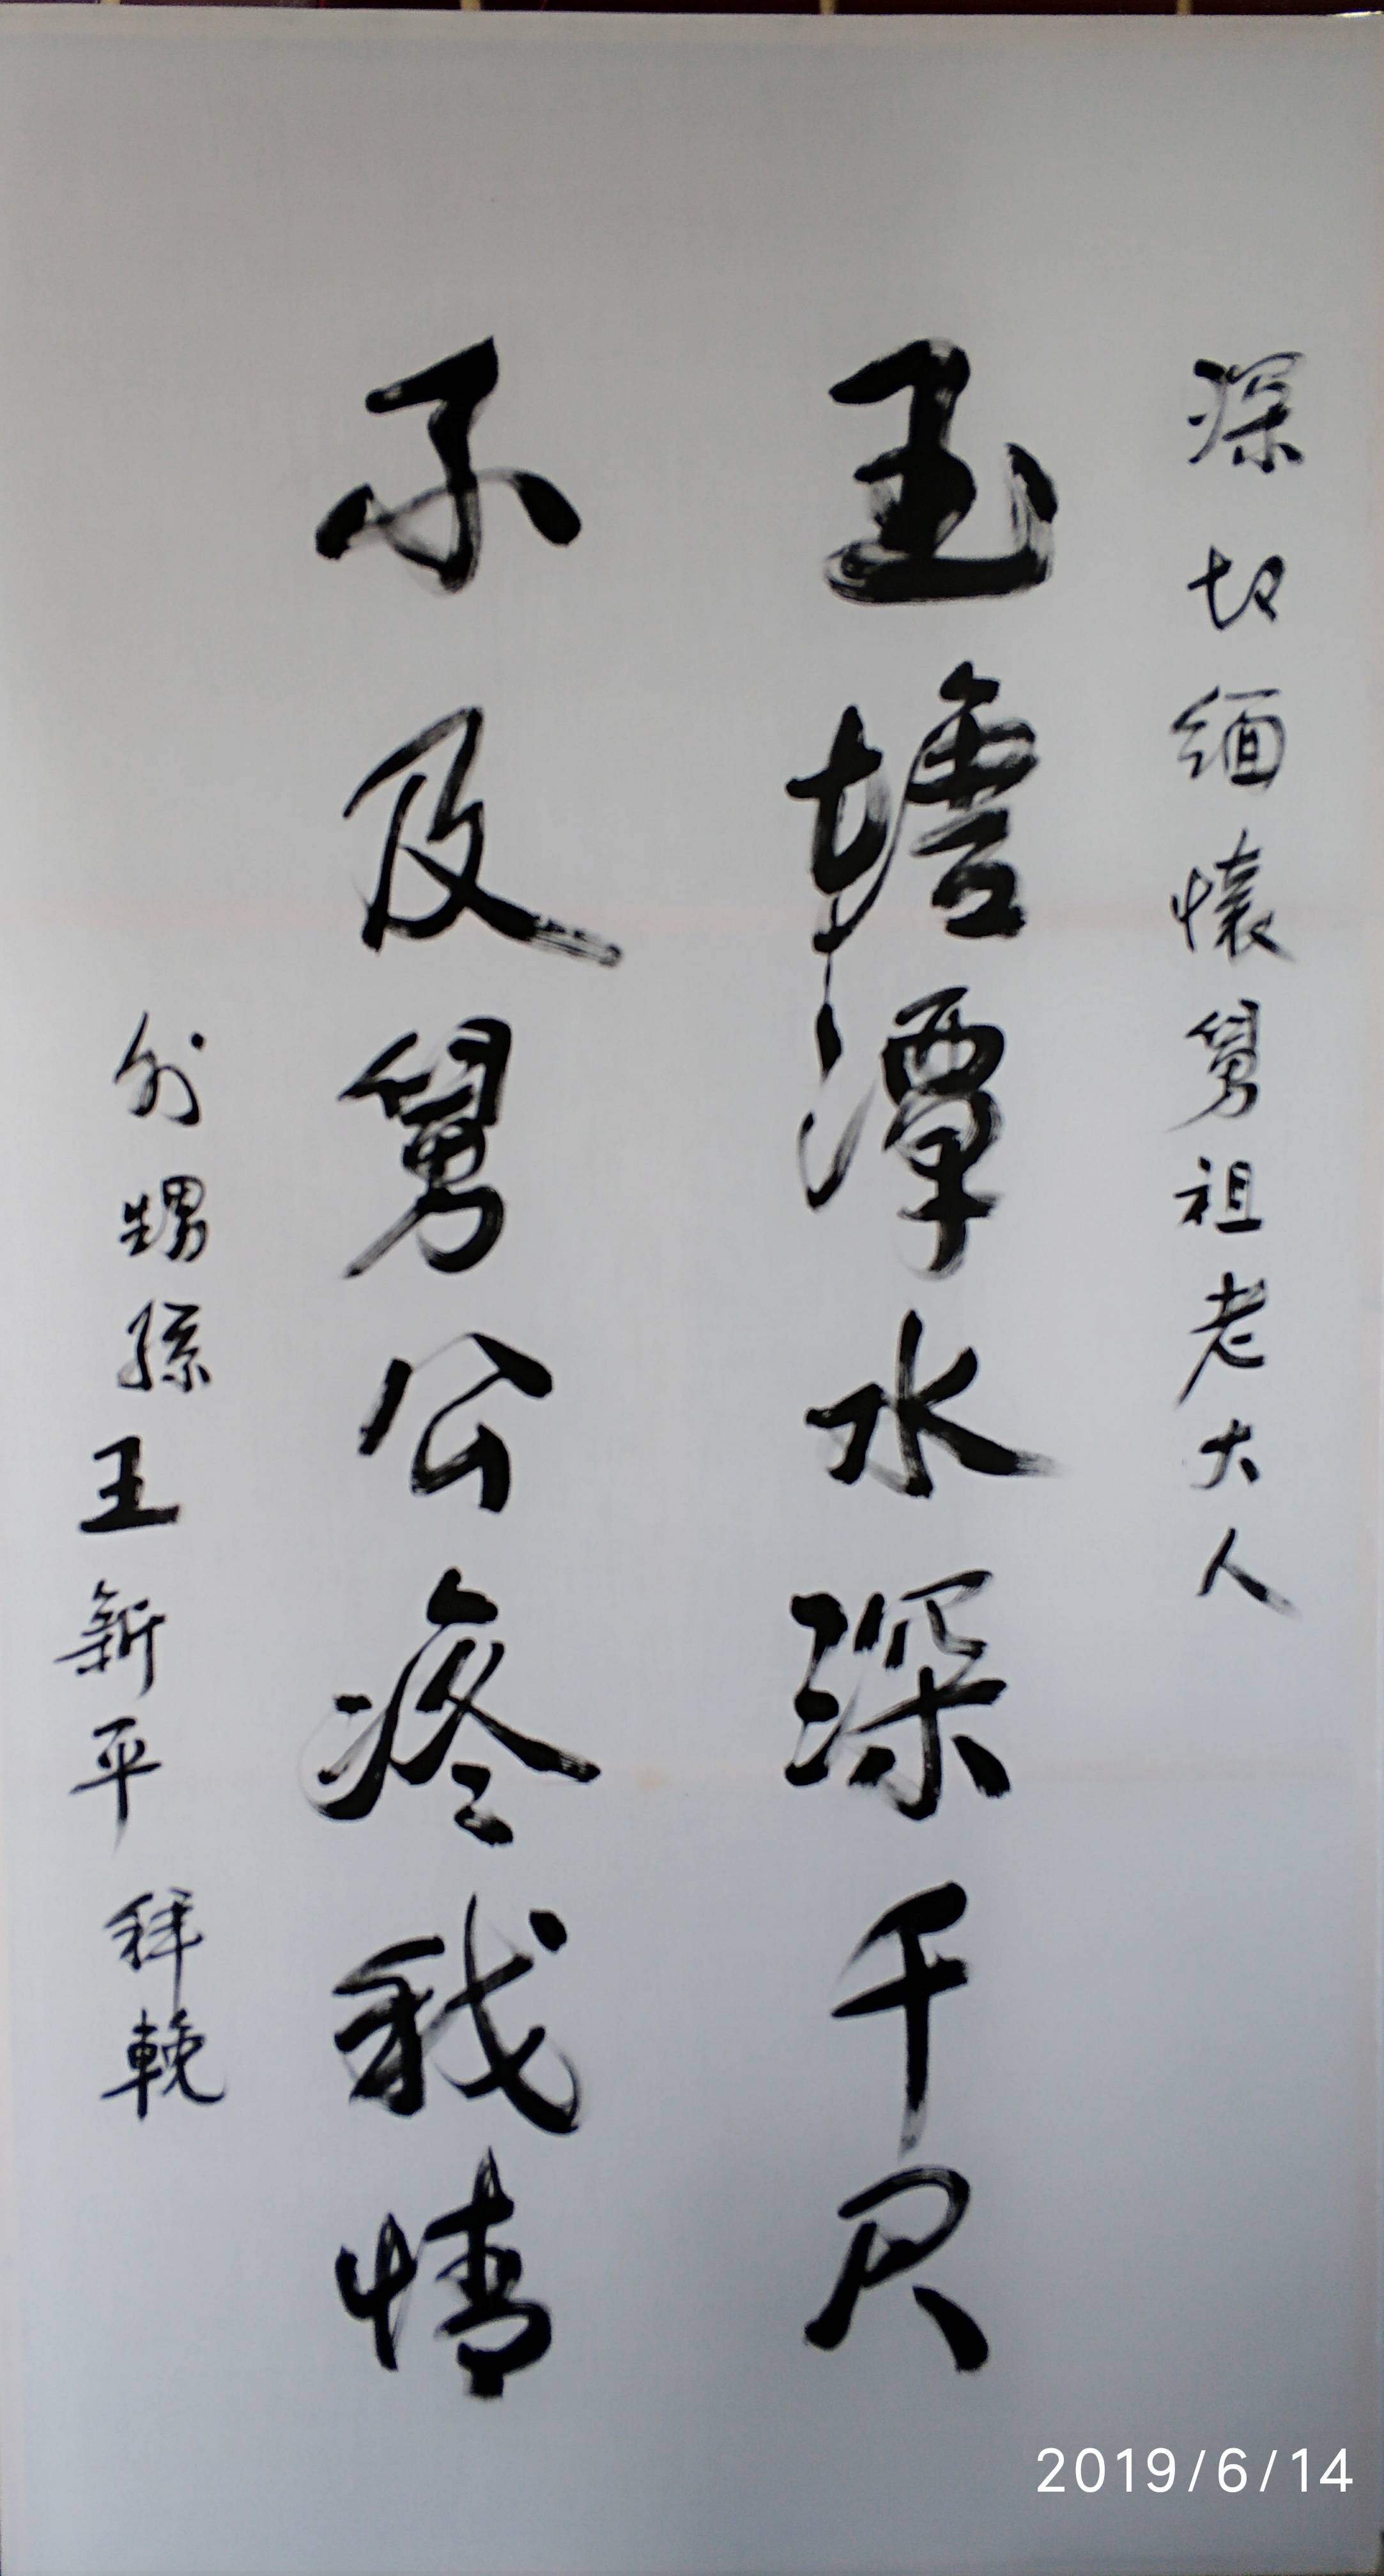 深切緬懷舅祖老大人
玉塘潭水深千尺
不及舅公疼我情
外甥孫王新平拜輓
2019/6/14